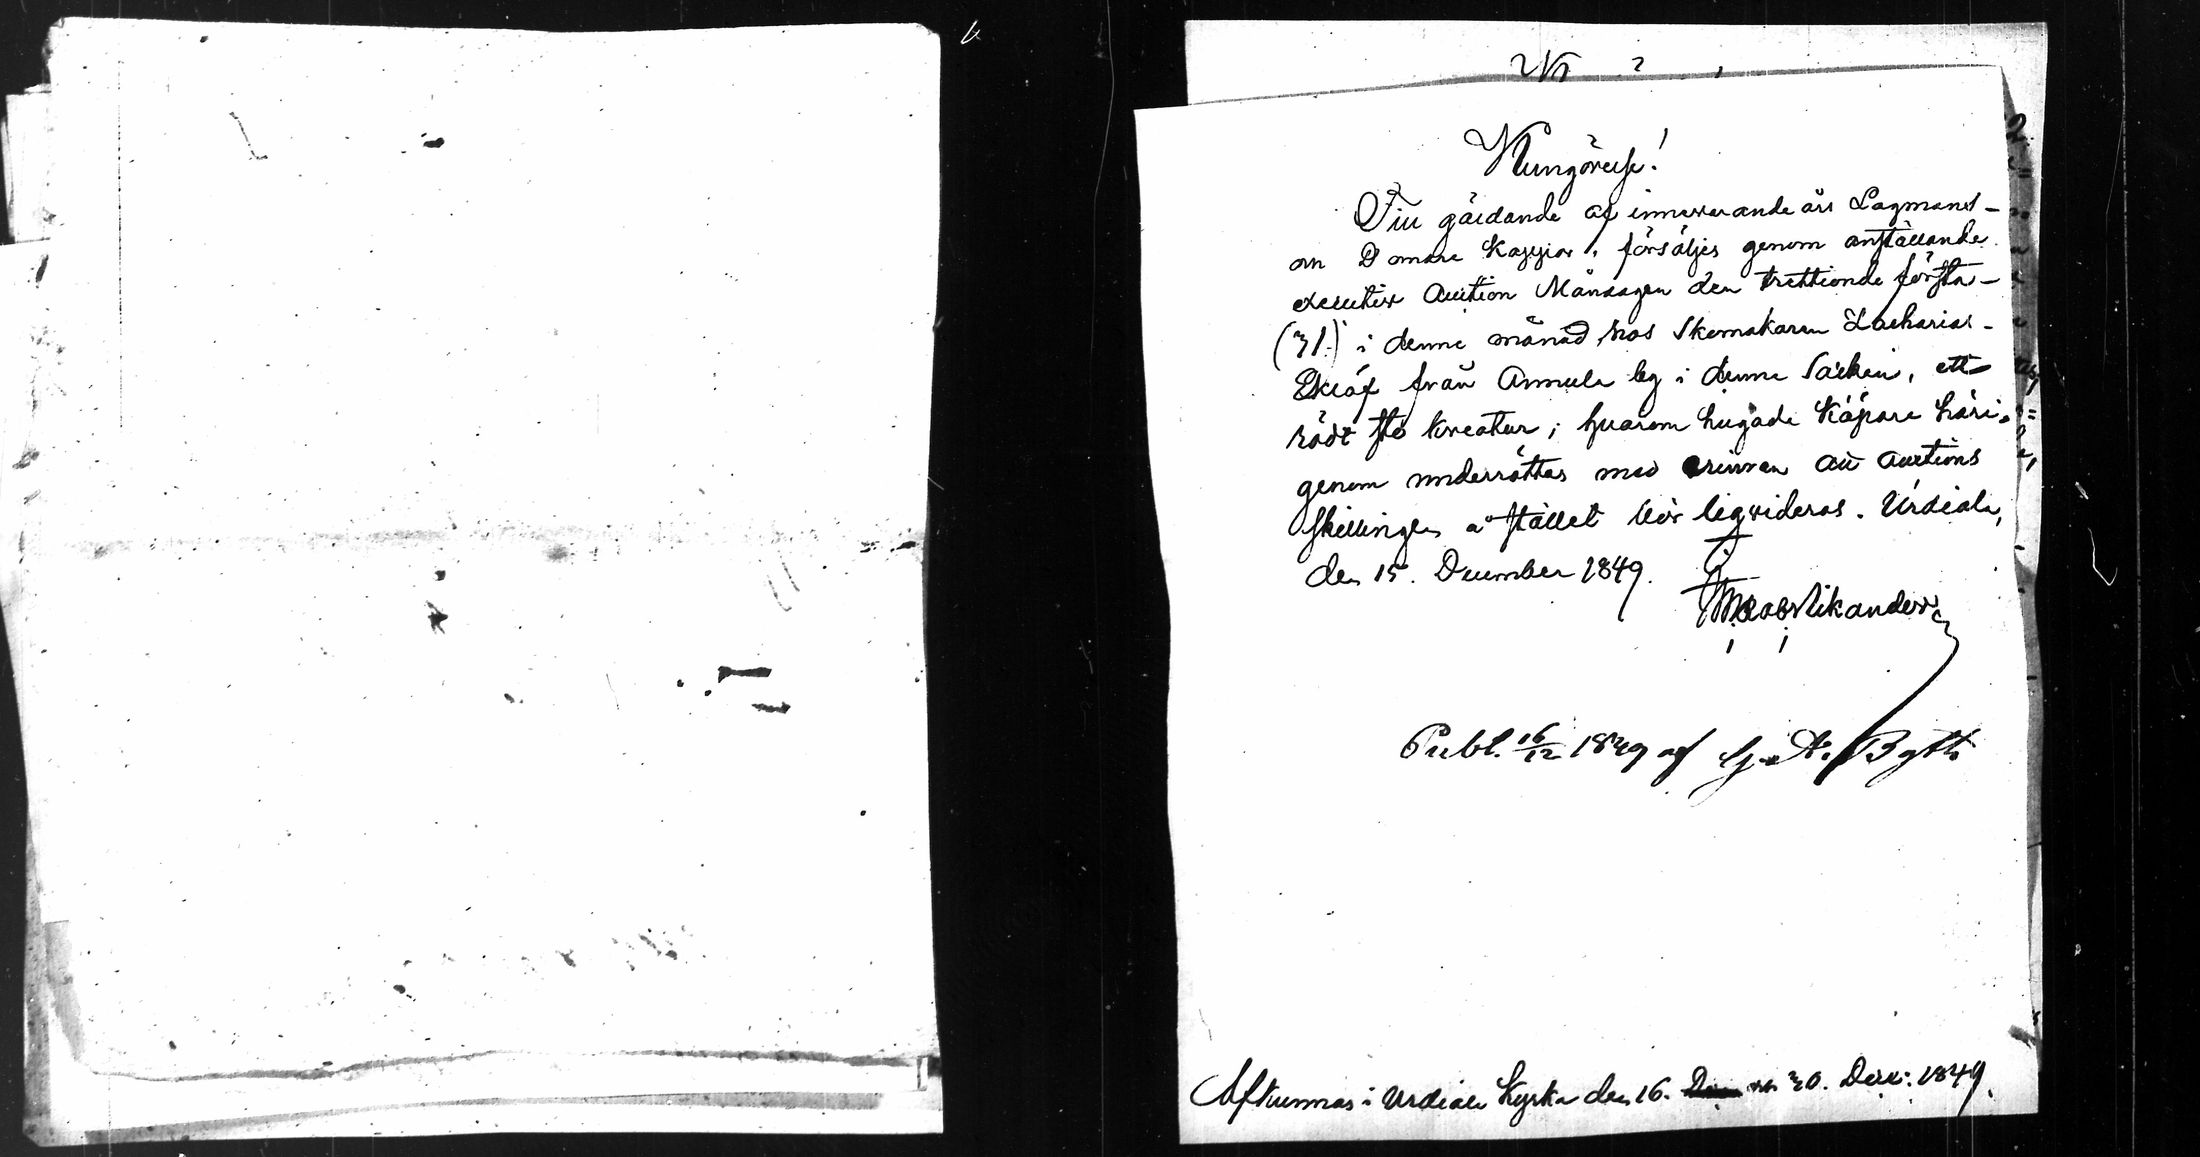 Kungörelse!
Till gäldande af innevarande års Lagmans-
och Domare Kappar, försäljes genom anställande
executiv Auction Måndagen den trettionde första
(31.) i denne månad hos Skomakaren Zacharias
Eklöf från Annula by i denne Socken, ett
rödt sto kreatur; hvarom hugade Köpare häri-
genom underrättas med erinran att auctions
skillingen å stället bör liqvideras. Urdiala,
den 15. December 1849.
Nikander
Publ. 16/12 1849 af G. A. Bgth.
Afkunnas i Urdiala Kyrka den 16. och 30. Dec: 1849.